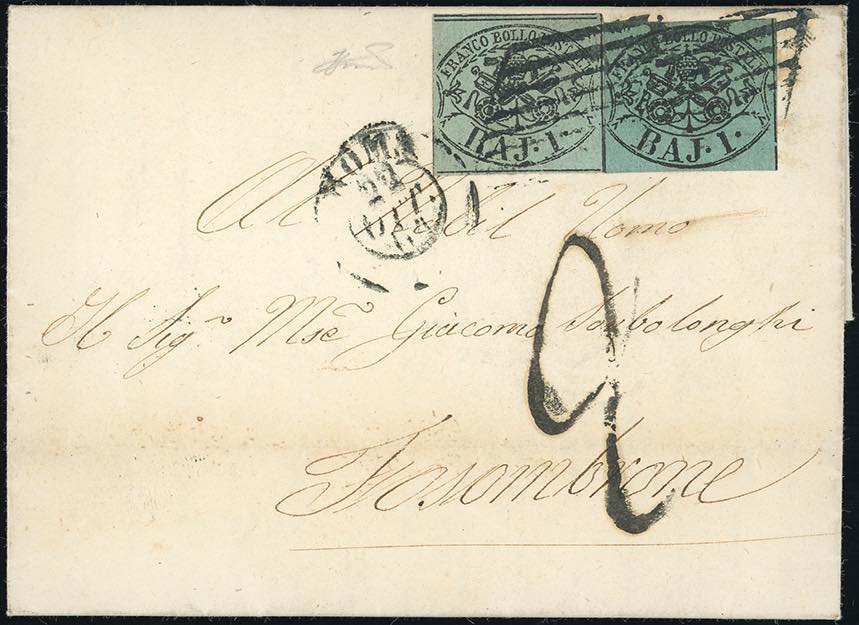 FRANCO BOLLO POSTALE
BAJ. 1.
FRANCO BOLLO POSTALE
BAJ. 1.
ROMA
22
OTT.
Al Nobil Uomo
Il Sigr. Mse. Giacomo
2
Fosombrone